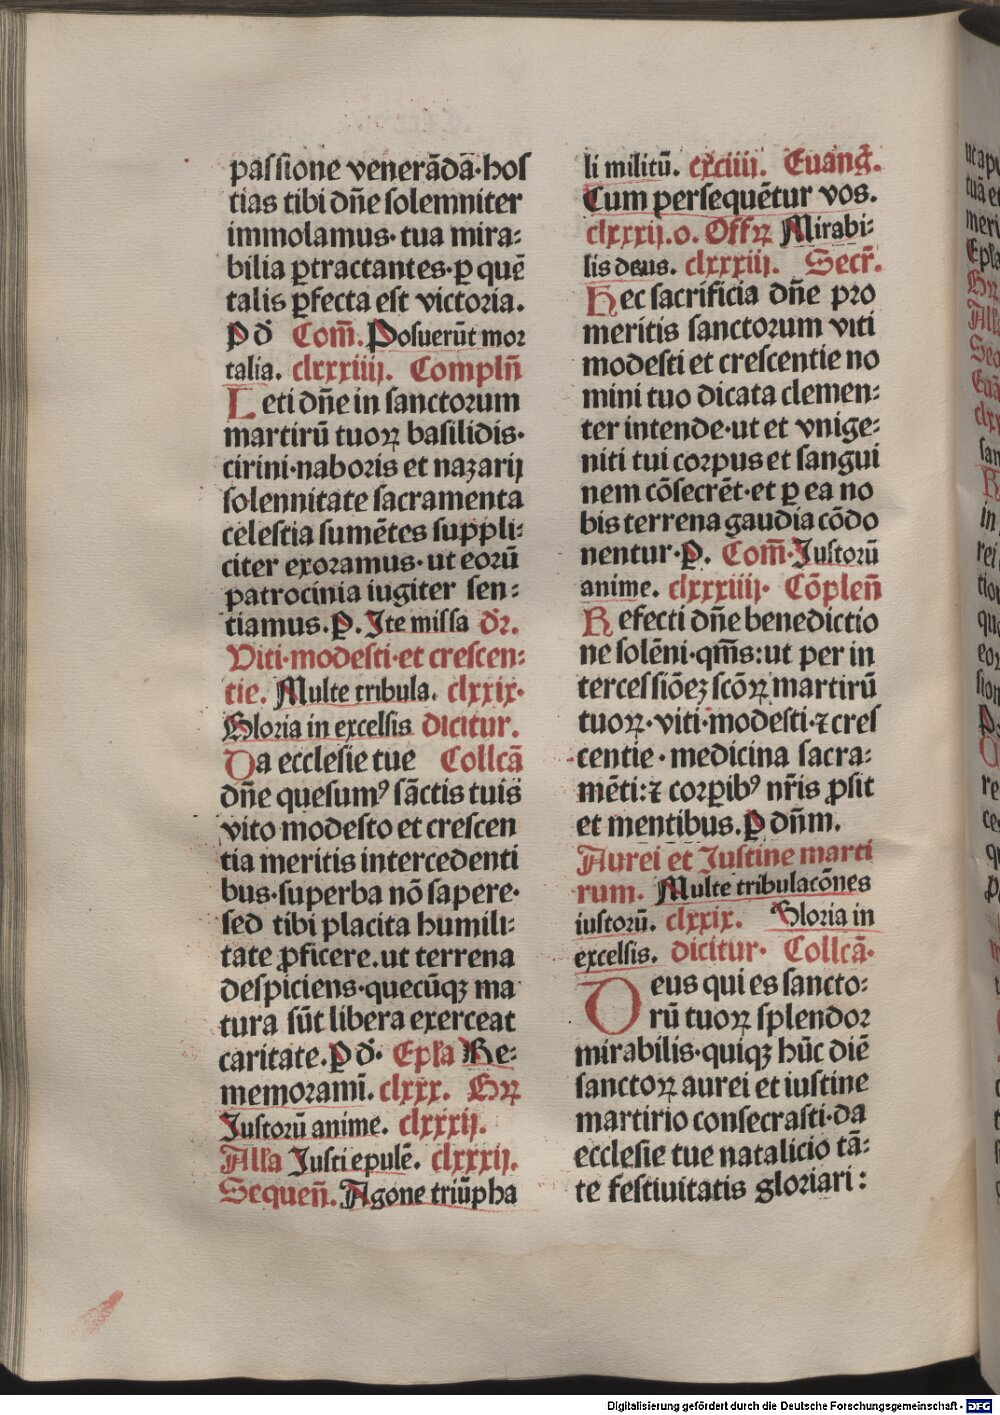 paſſione venerādā·hoſ
tias tibi dn̄e ſolemniter
immolamus· tua mira⸗
bilia ꝑtractantes·ꝑ quē
talis ꝑfecta eſt victoria.
P dˢ Com̄. Poſuerūt mor
talia. clxxxiiij. Compln̄
Leti dn̄e in ſanctorum
martirū tuoꝝ baſilidis·
cirini·naboris et nazarij
ſolennitate ſacramenta
celeſtia ſumētes ſuppli⸗
citer exoramus· ut eorū
patrocinia iugiter ſen⸗
tiamus. P. Ite miſſa dr̄.
Viti·modeſti·et creſcen⸗
tie. Multe tribula. clxxix·
Gloria in excelſis dicitur.
Da eccleſie tue Collcā
dn̄e queſumꝰ ſāctis tuis
vito modeſto et creſcen
tia meritis intercedenti
bus·ſuperba nō ſapere·
ſed tibi placita humili⸗
tate ꝓficere.ut terrena
deſpiciens·quecūqꝫ ma
tura ſūt libera exerceat
caritate. P dˢ· Epl̄a Re⸗
memorami. clxxx. Gꝝ
Juſtorū anime. clxxxij.
All̄a Juſti epulē. clxxxij.
Sequen̄. Agone triūpha
li militū. cxciiij. Euanḡ.
Cum perſequētur vos.
clxxxij.o. Offꝝ Mirabi⸗
lis deus. clxxxiij. Secr̄.
Hec ſacrificia dn̄e pro
meritis ſanctorum viti
modeſti et creſcentie no
mini tuo dicata clemen⸗
ter intende·ut et vnige⸗
niti tui corpus et ſangui
nem cōſecrēt·et ꝑ ea no
bis terrena gaudia cōdo
nentur· P. Com̄· Juſtorū
anime. clxxxiiij· Cōplen̄
Refecti dn̄e benedictio
ne ſolēni·qm̄s:ut per in
terceſſiōeꝫ ſcōꝝ martirū
tuoꝝ·viti·modeſti·⁊ creſ
centie·medicina ſacra⸗
mēti:⁊ corꝑibꝰ nr̄is ꝓſit
et mentibus. P dn̄m.
Aurei et Juſtine marti
rum. Multe tribulacōnes
iuſtorū. clxxix. Gloria in
excelſis. dicitur· Collcā·
Deus qui es ſancto⸗
rū tuoꝝ ſplendor
mirabilis·quiqꝫ hūc diē
ſanctoꝝ aurei et iuſtine
martirio conſecraſti·da
eccleſie tue natalicio tā⸗
te feſtiuitatis gloriari:
Digitalisierung gefördert durch die Deutsche Forschungsgemeinschaft - DFG